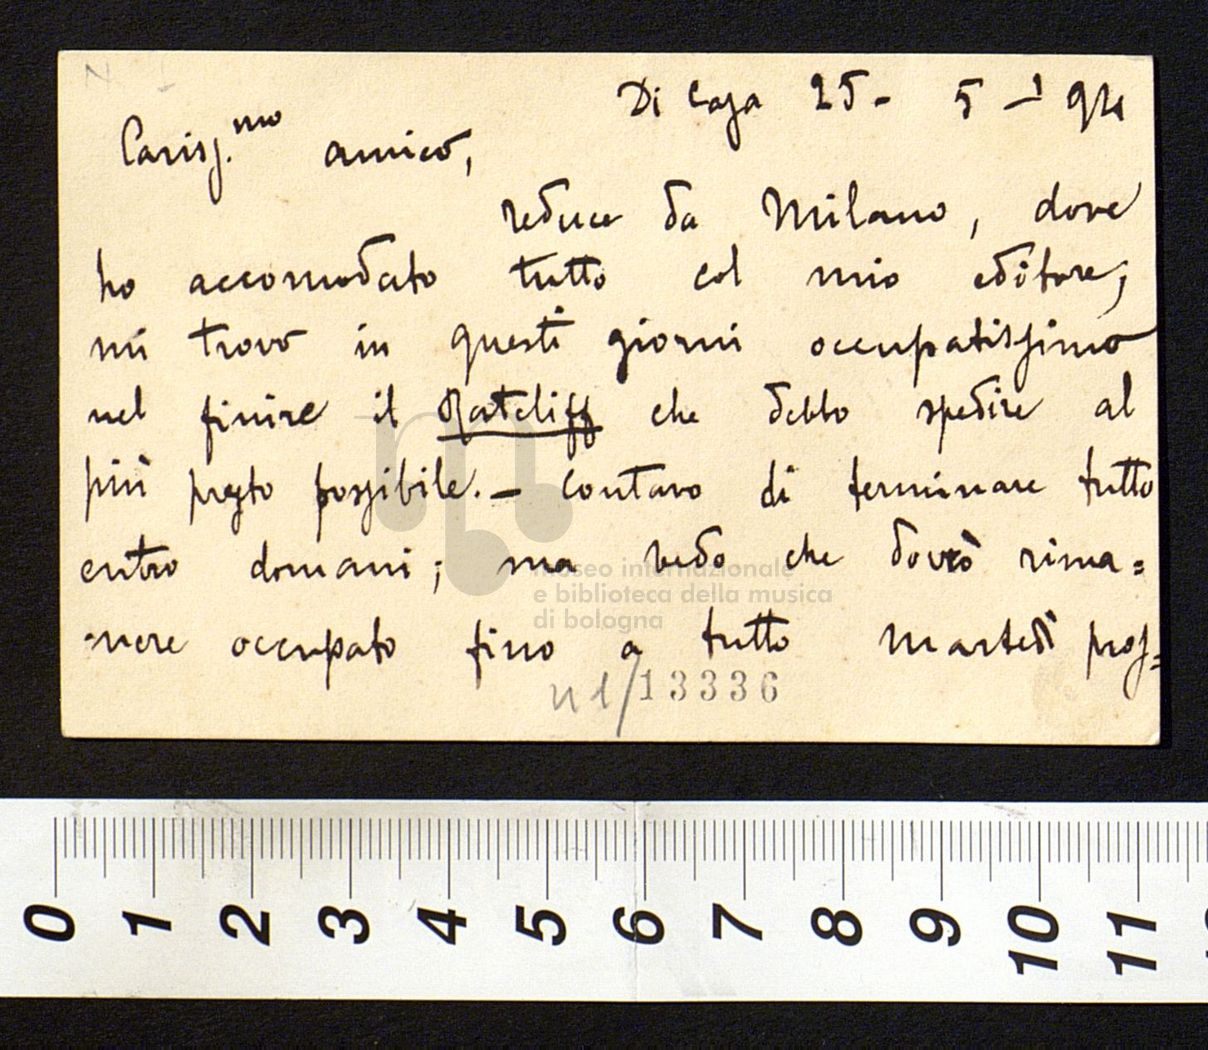 Di Casa 25 - 5 - '94
Cariss.mo amico,
reduce da Milano, dove
ho accomodato tutto col mio editore,
mi trovo in questi giorni occupatissimo
nel finire il Ratcliff che debbo spedire al
più presto possibile. - Contavo di terminare tutto
entro domani; ma vedo che dovrò rima=
nere occupato fino a tutto Martedì pros=
n 1/13336
museo internazionale
e biblioteca della musica
di bologna
0 1 2 3 4 5 6 7 8 9 10 11